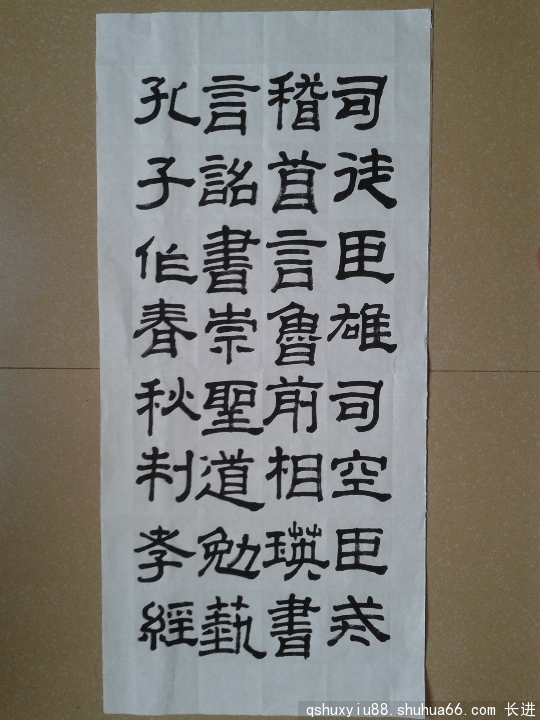 司徒臣雄司空臣戒
稽首言魯前相瑛書
言詔書崇聖道勉藝
孔子作春秋制孝經
qshuxyiu88.shuhua66.com 长进